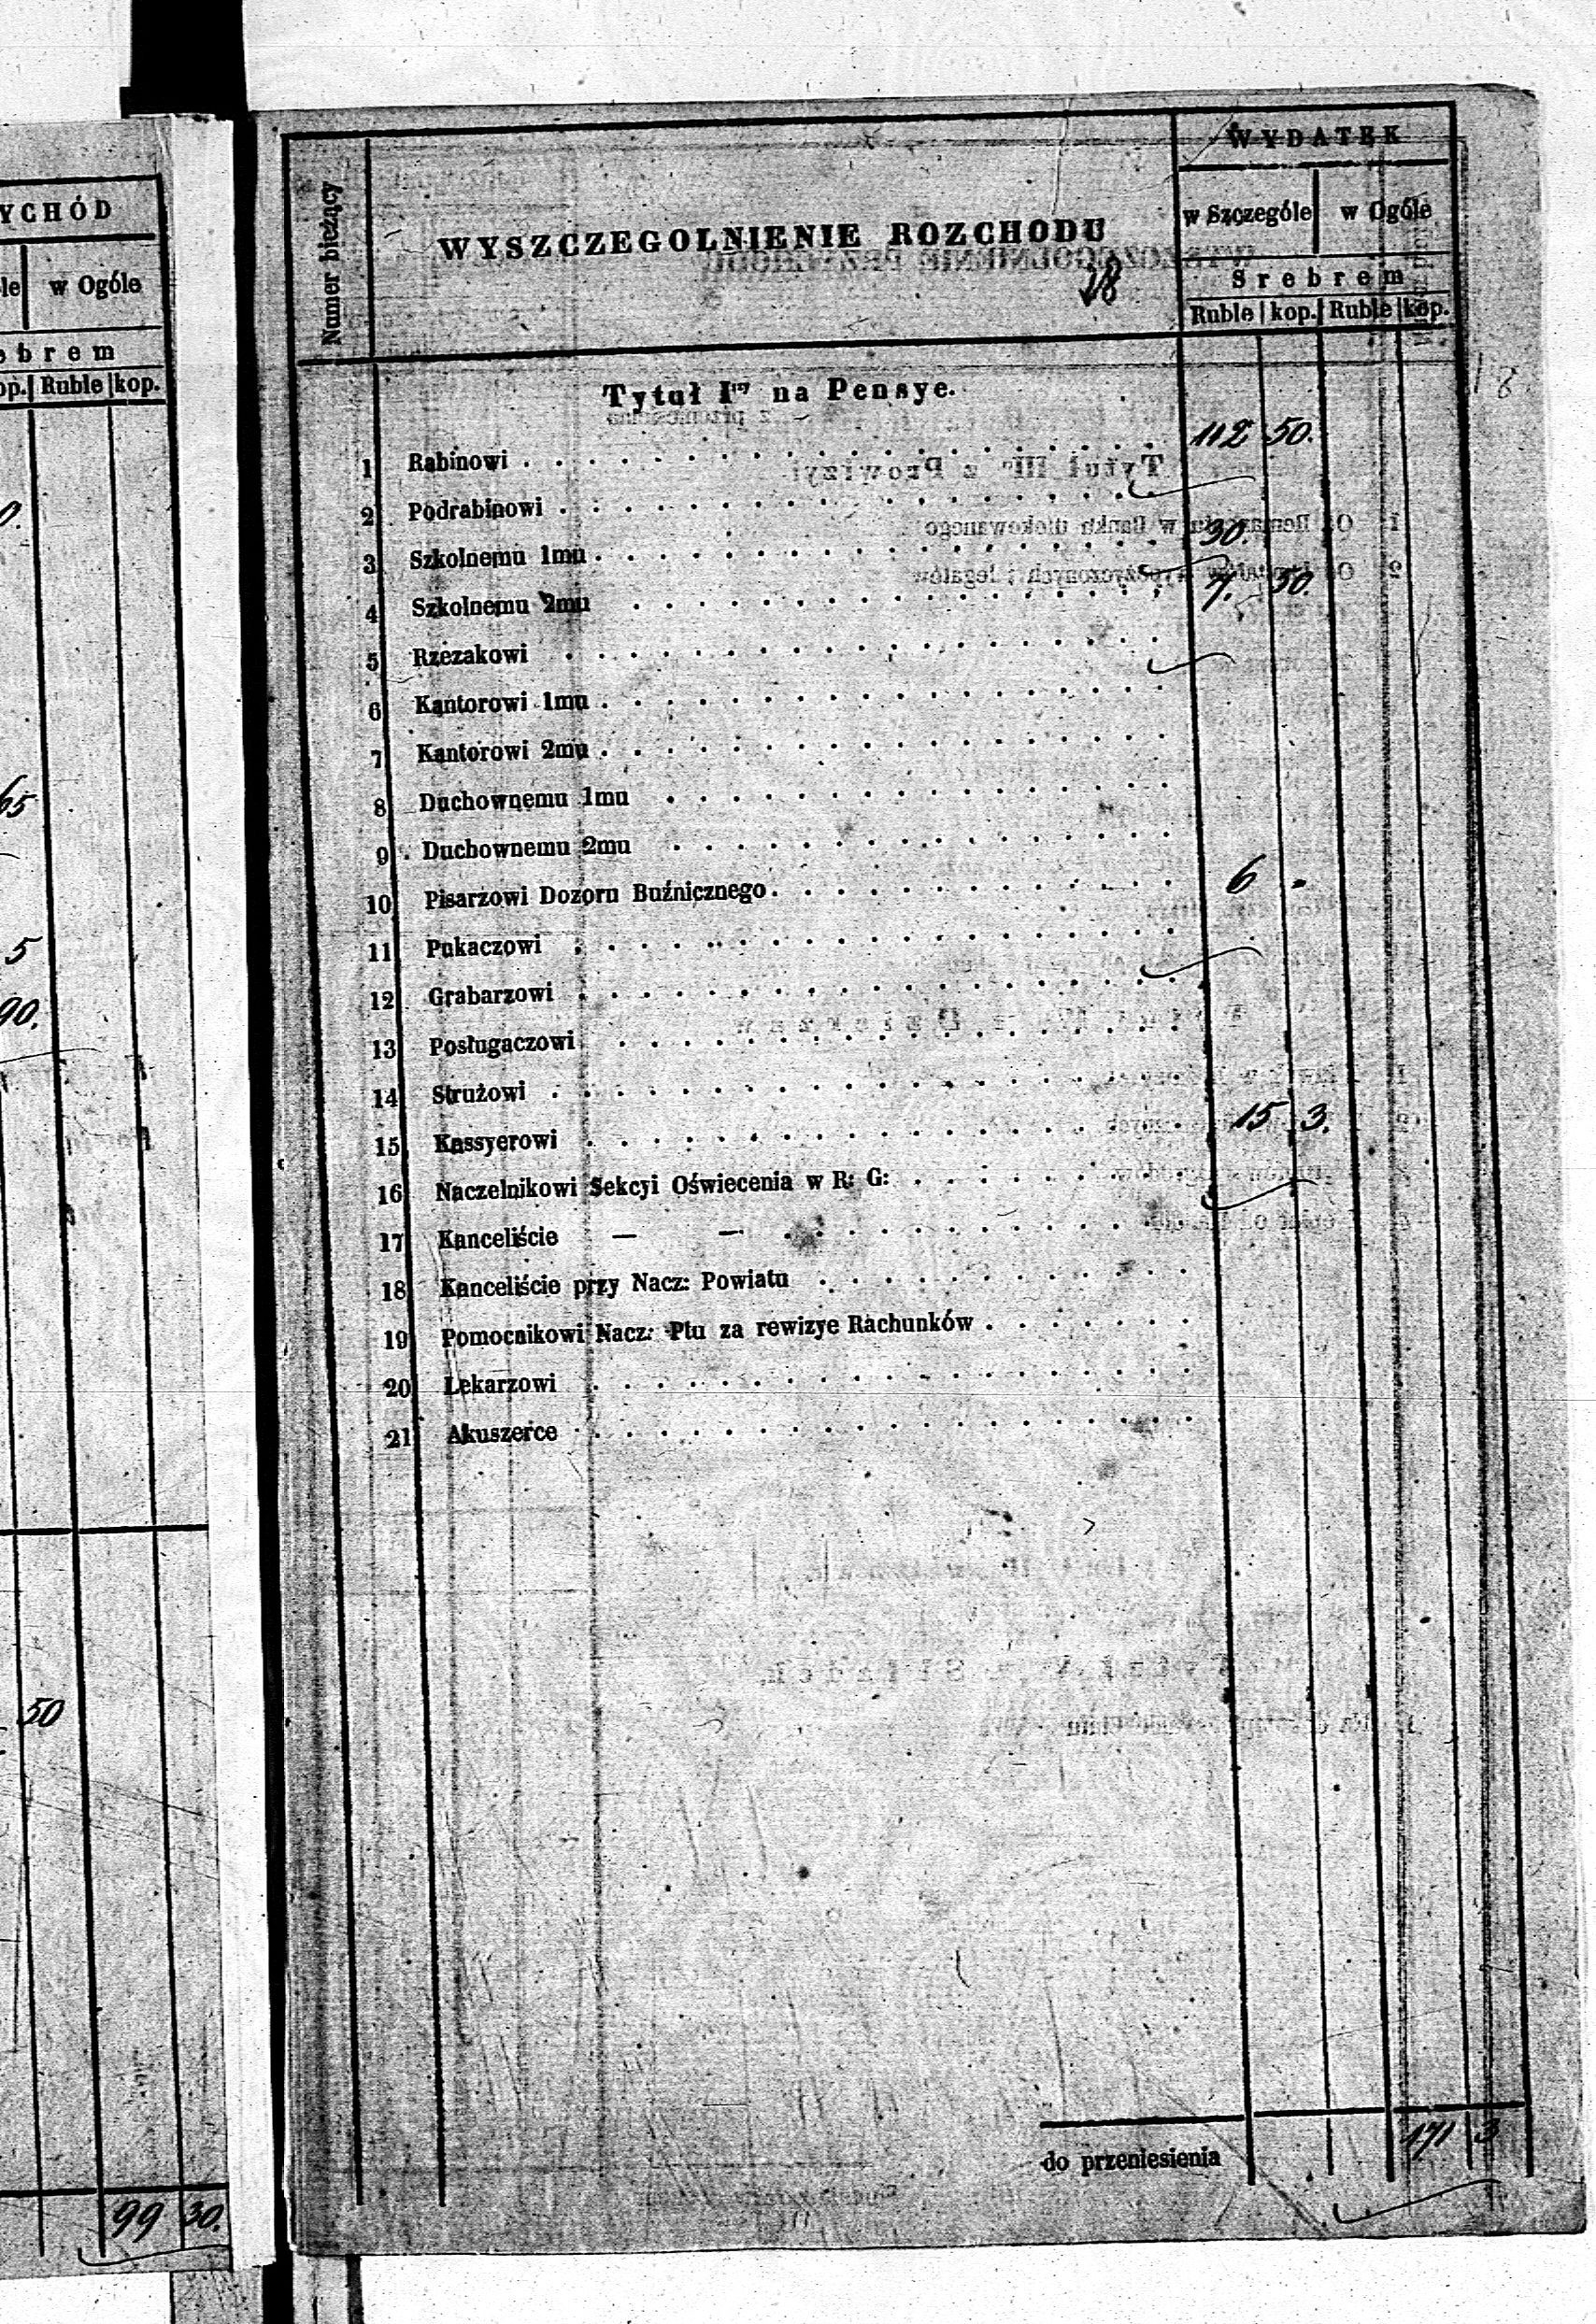 YCHÓD
le w Ogóle
ebrem
op. Ruble kop.
0.
65
5
90.
50
99 30.
Numer bieżący
WYSZCZEGOLNIENIE ROZCHODU
WYDATEK
w Szczególe w Ogóle
Srebrem
Ruble kop. Ruble kop.
18
18
Tytuł Iny na Pensye.
1 Rabinowi 112 50.
2 Podrabinowi
3 Szkolnemu 1mu 30.
4 Szkolnemu 2mu 7. 50.
5 Rzezakowi
6 Kantorowi 1mu
7 Kantorowi 2mu
8 Duchownemu 1mu
9 Duchownemu 2mu
10 Pisarzowi Dozoru Buźnicznego 6 -
11 Pukaczowi
12 Grabarzowi
13 Posługaczowi
14 Strużowi
15 Kassyerowi 15 3.
16 Naczelnikowi Sekcyi Oświecenia w R: G:
17 Kanceliście — —
18 Kanceliście przy Nacz: Powiatu
19 Pomocnikowi Nacz: Ptu za rewizye Rachunków
20 Lekarzowi
21 Akuszerce
do przeniesienia 171 3